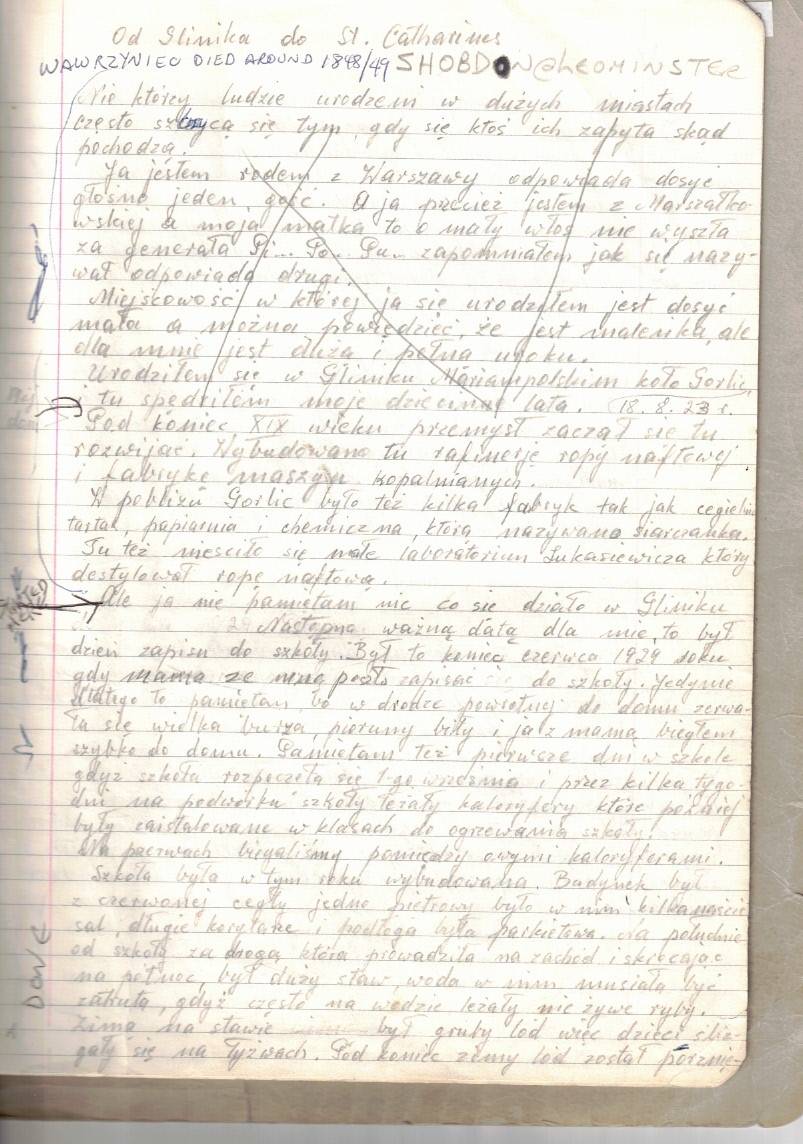 Od Glinika do St. Catharines
WAWRZYNIEC DIED AROUND 1848/49 SHOBDON @ LEOMINSTER
Nie którzy ludzie urodzeni w dużych miastach
często szczycą się tym, gdy się ktoś ich zapyta skąd
pochodzą.
Ja jestem rodem z Warszawy odpowiada dosyć
głośno jeden gość. A ja przecież jestem z Marszałko-
wskiej a moja matka to o mały włos nie wyszła
za generała Pi... Po... Pu... zapomniałem jak się nazy-
wał odpowiada drugi.
Miejscowość w której ja się urodziłem jest dosyć
mała a można powiedzieć, że jest maleńka, ale
dla mnie jest duża i pełna uroku.
Urodziłem się w Gliniku Mariampolskim koło Gorlic,
i tu spędziłem moje dziecinne lata. 18.8.23 r.
Pod koniec XIX wieku przemysł zaczął się tu
rozwijać. Wybudowano tu rafinerję ropy naftowej
i fabrykę maszyn kopalnianych.
W pobliżu Gorlic było też kilka fabryk tak jak cegielnia
tartak, papiarnia i chemiczna, którą nazywano siarczanka.
Tu też mieściło się małe laboratorium Łukasiewicza który
destylował ropę naftową.
Ale ja nie pamiętam nic co się działo w Gliniku
Następną ważną datą dla mnie to był
dzień zapisu do szkoły. Był to koniec czerwca 1929 roku
gdy mama ze mną poszła zapisać się do szkoły. Jedynie
dlatego to pamiętam, bo w drodze powrotnej do domu zerwa-
ła się wielka burza, pioruny biły i ja z mamą biegłem
szybko do domu. Pamiętam też pierwsze dni w szkole
gdyż szkoła rozpoczęła się 1-go września i przez kilka tygo-
dni na podwórku szkoły leżały kaloryfery które później
były zaistalowane w klasach do ogrzewania szkoły.
Na pazerwach biegaliśmy pomiędzy owymi kaloryferami.
Szkoła była w tym roku wybudowana. Budynek był
z czerwonej cegły jedno piętrowy było w nim kilkanaście
sal, długie korytarze i podłoga była parkietowa. Na południe
od szkoły za drogą która prowadziła na zachód i skręcając
na północ był duży staw, woda w nim musiała być
zatruta, gdyż często na wodzie leżały nie żywe ryby.
Zimą na stawie był gruby lód więc dzieci śliz-
gały się na łyżwach. Pod koniec zimy lód został porznię-
DONE